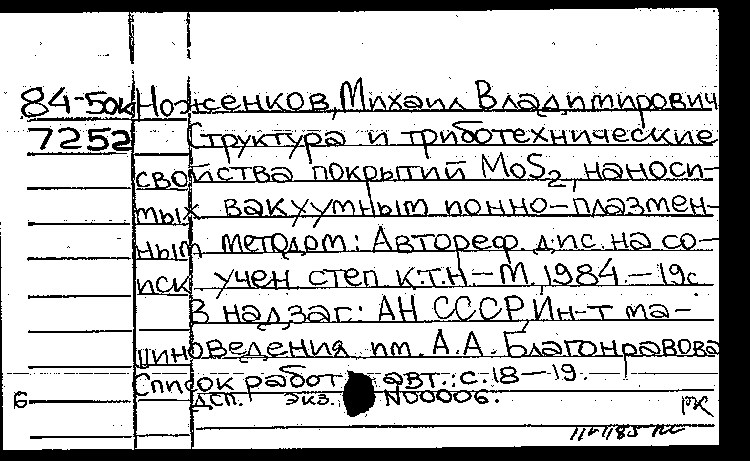 84-50к Ноженков, Михаил Владимирович
7252 Структура и триботехнические
свойства покрытий MoS2, наноси-
мых вакуумным ионно-плазмен-
ным методом: Автореф. дис. на со-
иск учен степ к.т.н. – М, 1984. – 19с
В надзаг.: АН СССР, Ин-т ма-
шиноведения им. А.А. Благонравова
Список работ авт.: с. 18–19.
Б дсп. экз. N00006. РК